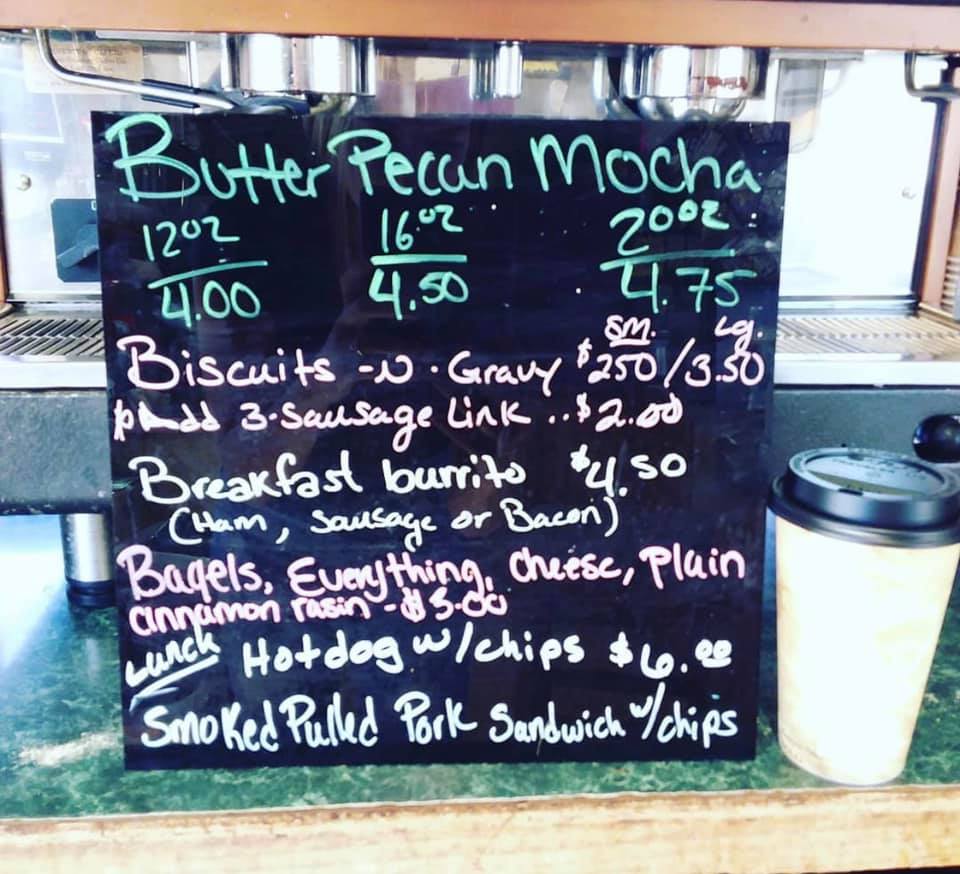 Butter Pecan Mocha
12oz 16oz 20oz
4.00 4.50 4.75
sm. Lg.
Biscuits -N-Gravy $250/3.50
Add 3-Sausage Link ..$2.00
Breakfast burrito $4.50
(Ham, Sausage or Bacon)
Bagels, Everything, Cheese, Plain
Cinnamon rasin -$3.00
Lunch Hotdog w/chips $6.00
Smoked Pulled Pork Sandwich w/chips